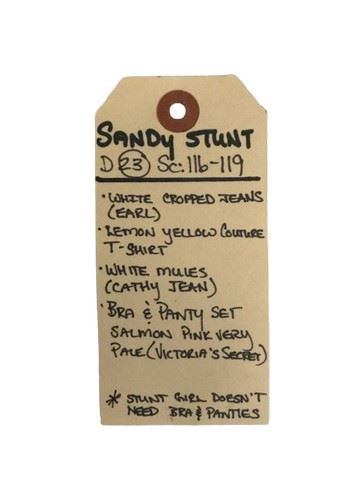 SANDY STUNT
D 23 Sc: 116-119
• WHITE CROPPED JEANS
(EARL)
• LEMON YELLOW COUTURE
T-SHIRT
• WHITE MULES
(CATHY JEAN)
• BRA & PANTY SET
SALMON PINK VERY
PALE (VICTORIA'S SECRET)
* STUNT GIRL DOESN'T
NEED BRA & PANTIES